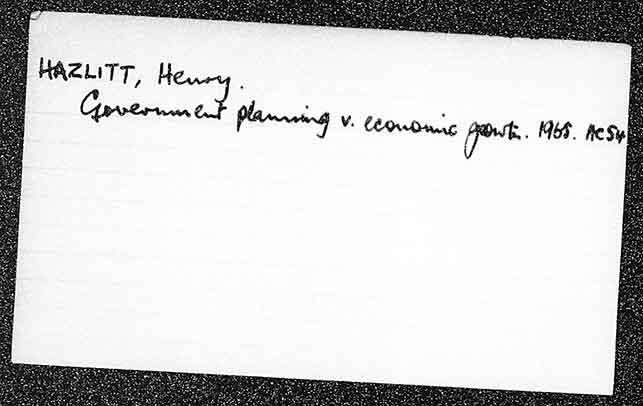 HAZLITT, Henry.
Government planning v. economic growth. 1965. AC54